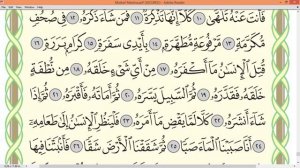 فَأَنتَ عَنْهُ تَلَهَّىٰ ١٠ كَلَّآ إِنَّهَا تَذْكِرَةٌ ١١ فَمَن شَآءَ ذَكَرَهُۥ ١٢ فِى صُحُفٍ
مُّكَرَّمَةٍ ١٣ مَّرْفُوعَةٍ مُّطَهَّرَةٍۭ ١٤ بِأَيْدِى سَفَرَةٍ ١٥ كِرَامٍۭ بَرَرَةٍ ١٦
قُتِلَ ٱلْإِنسَٰنُ مَآ أَكْفَرَهُۥ ١٧ مِنْ أَىِّ شَىْءٍ خَلَقَهُۥ ١٨ مِن نُّطْفَةٍ
خَلَقَهُۥ فَقَدَّرَهُۥ ١٩ ثُمَّ ٱلسَّبِيلَ يَسَّرَهُۥ ٢٠ ثُمَّ أَمَاتَهُۥ فَأَقْبَرَهُۥ ٢١ ثُمَّ إِذَا
شَآءَ أَنشَرَهُۥ ٢٢ كَلَّا لَمَّا يَقْضِ مَآ أَمَرَهُۥ ٢٣ فَلْيَنظُرِ ٱلْإِنسَٰنُ إِلَىٰ طَعَامِهِۦٓ
٢٤ أَنَّا صَبَبْنَا ٱلْمَآءَ صَبًّا ٢٥ ثُمَّ شَقَقْنَا ٱلْأَرْضَ شَقًّا ٢٦ فَأَنۢبَتْنَا فِيهَا